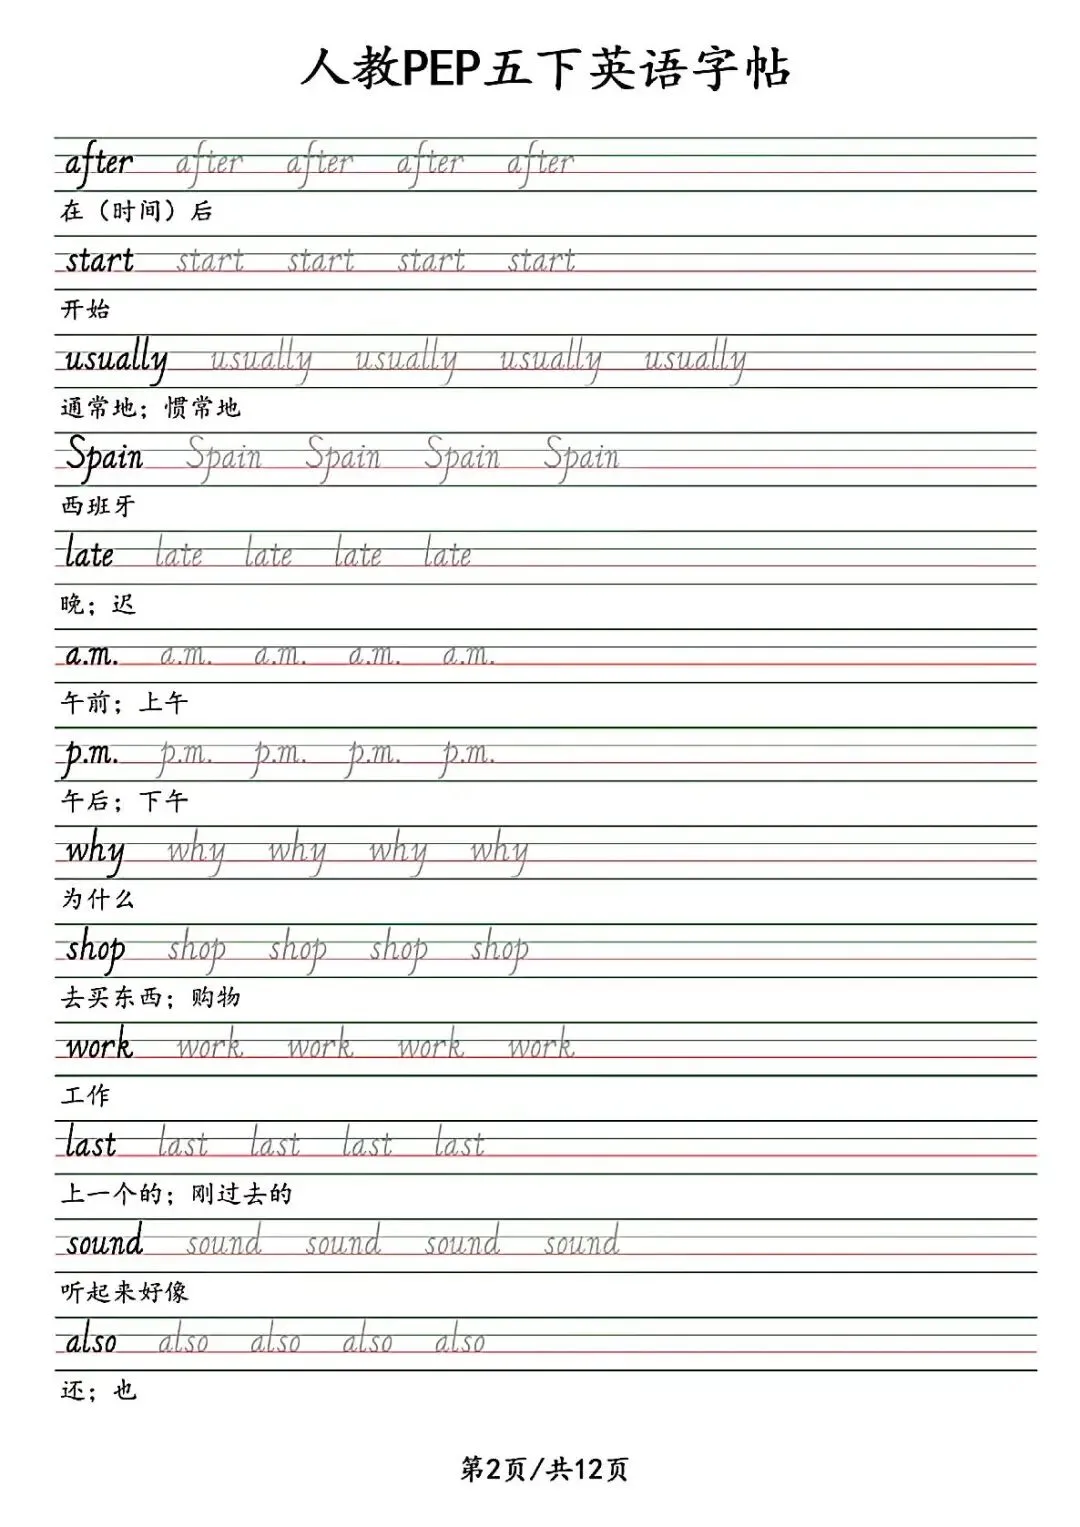 人教PEP五下英语字帖
after after after after after
在（时间）后
start start start start start
开始
usually usually usually usually usually
通常地；惯常地
Spain Spain Spain Spain Spain
西班牙
late late late late late
晚；迟
a.m. a.m. a.m. a.m. a.m.
午前；上午
p.m. p.m. p.m. p.m. p.m.
午后；下午
why why why why why
为什么
shop shop shop shop shop
去买东西；购物
work work work work work
工作
last last last last last
上一个的；刚过去的
sound sound sound sound sound
听起来好像
also also also also also
还；也
第2页/共12页